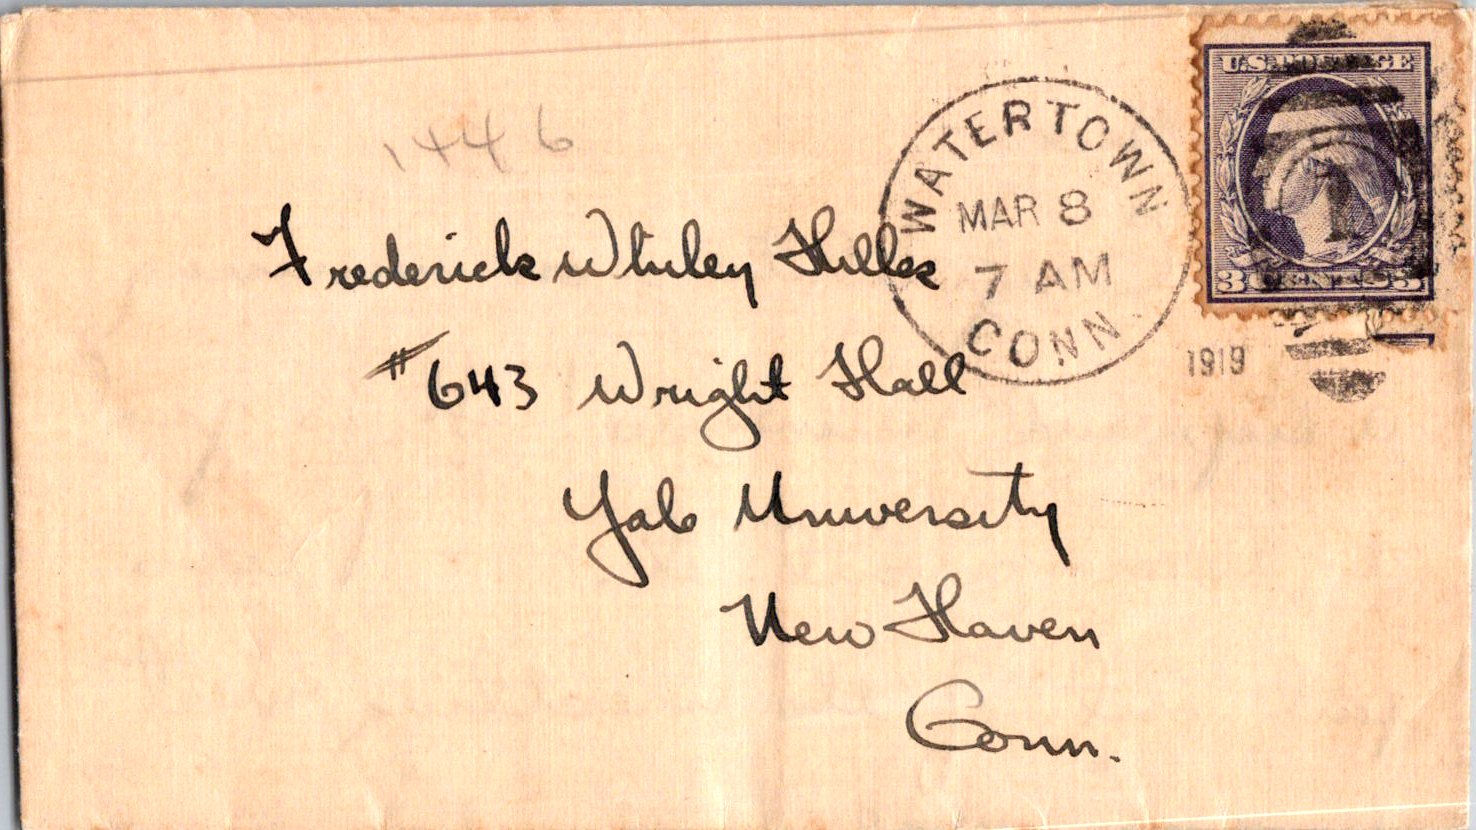 1446
U.S. POSTAGE
3 CENTS 3
1
WATERTOWN
MAR 8
7 AM
CONN.
1919
Frederick Whiley Hilles
#643 Wright Hall
Yale University
New Haven
Conn.